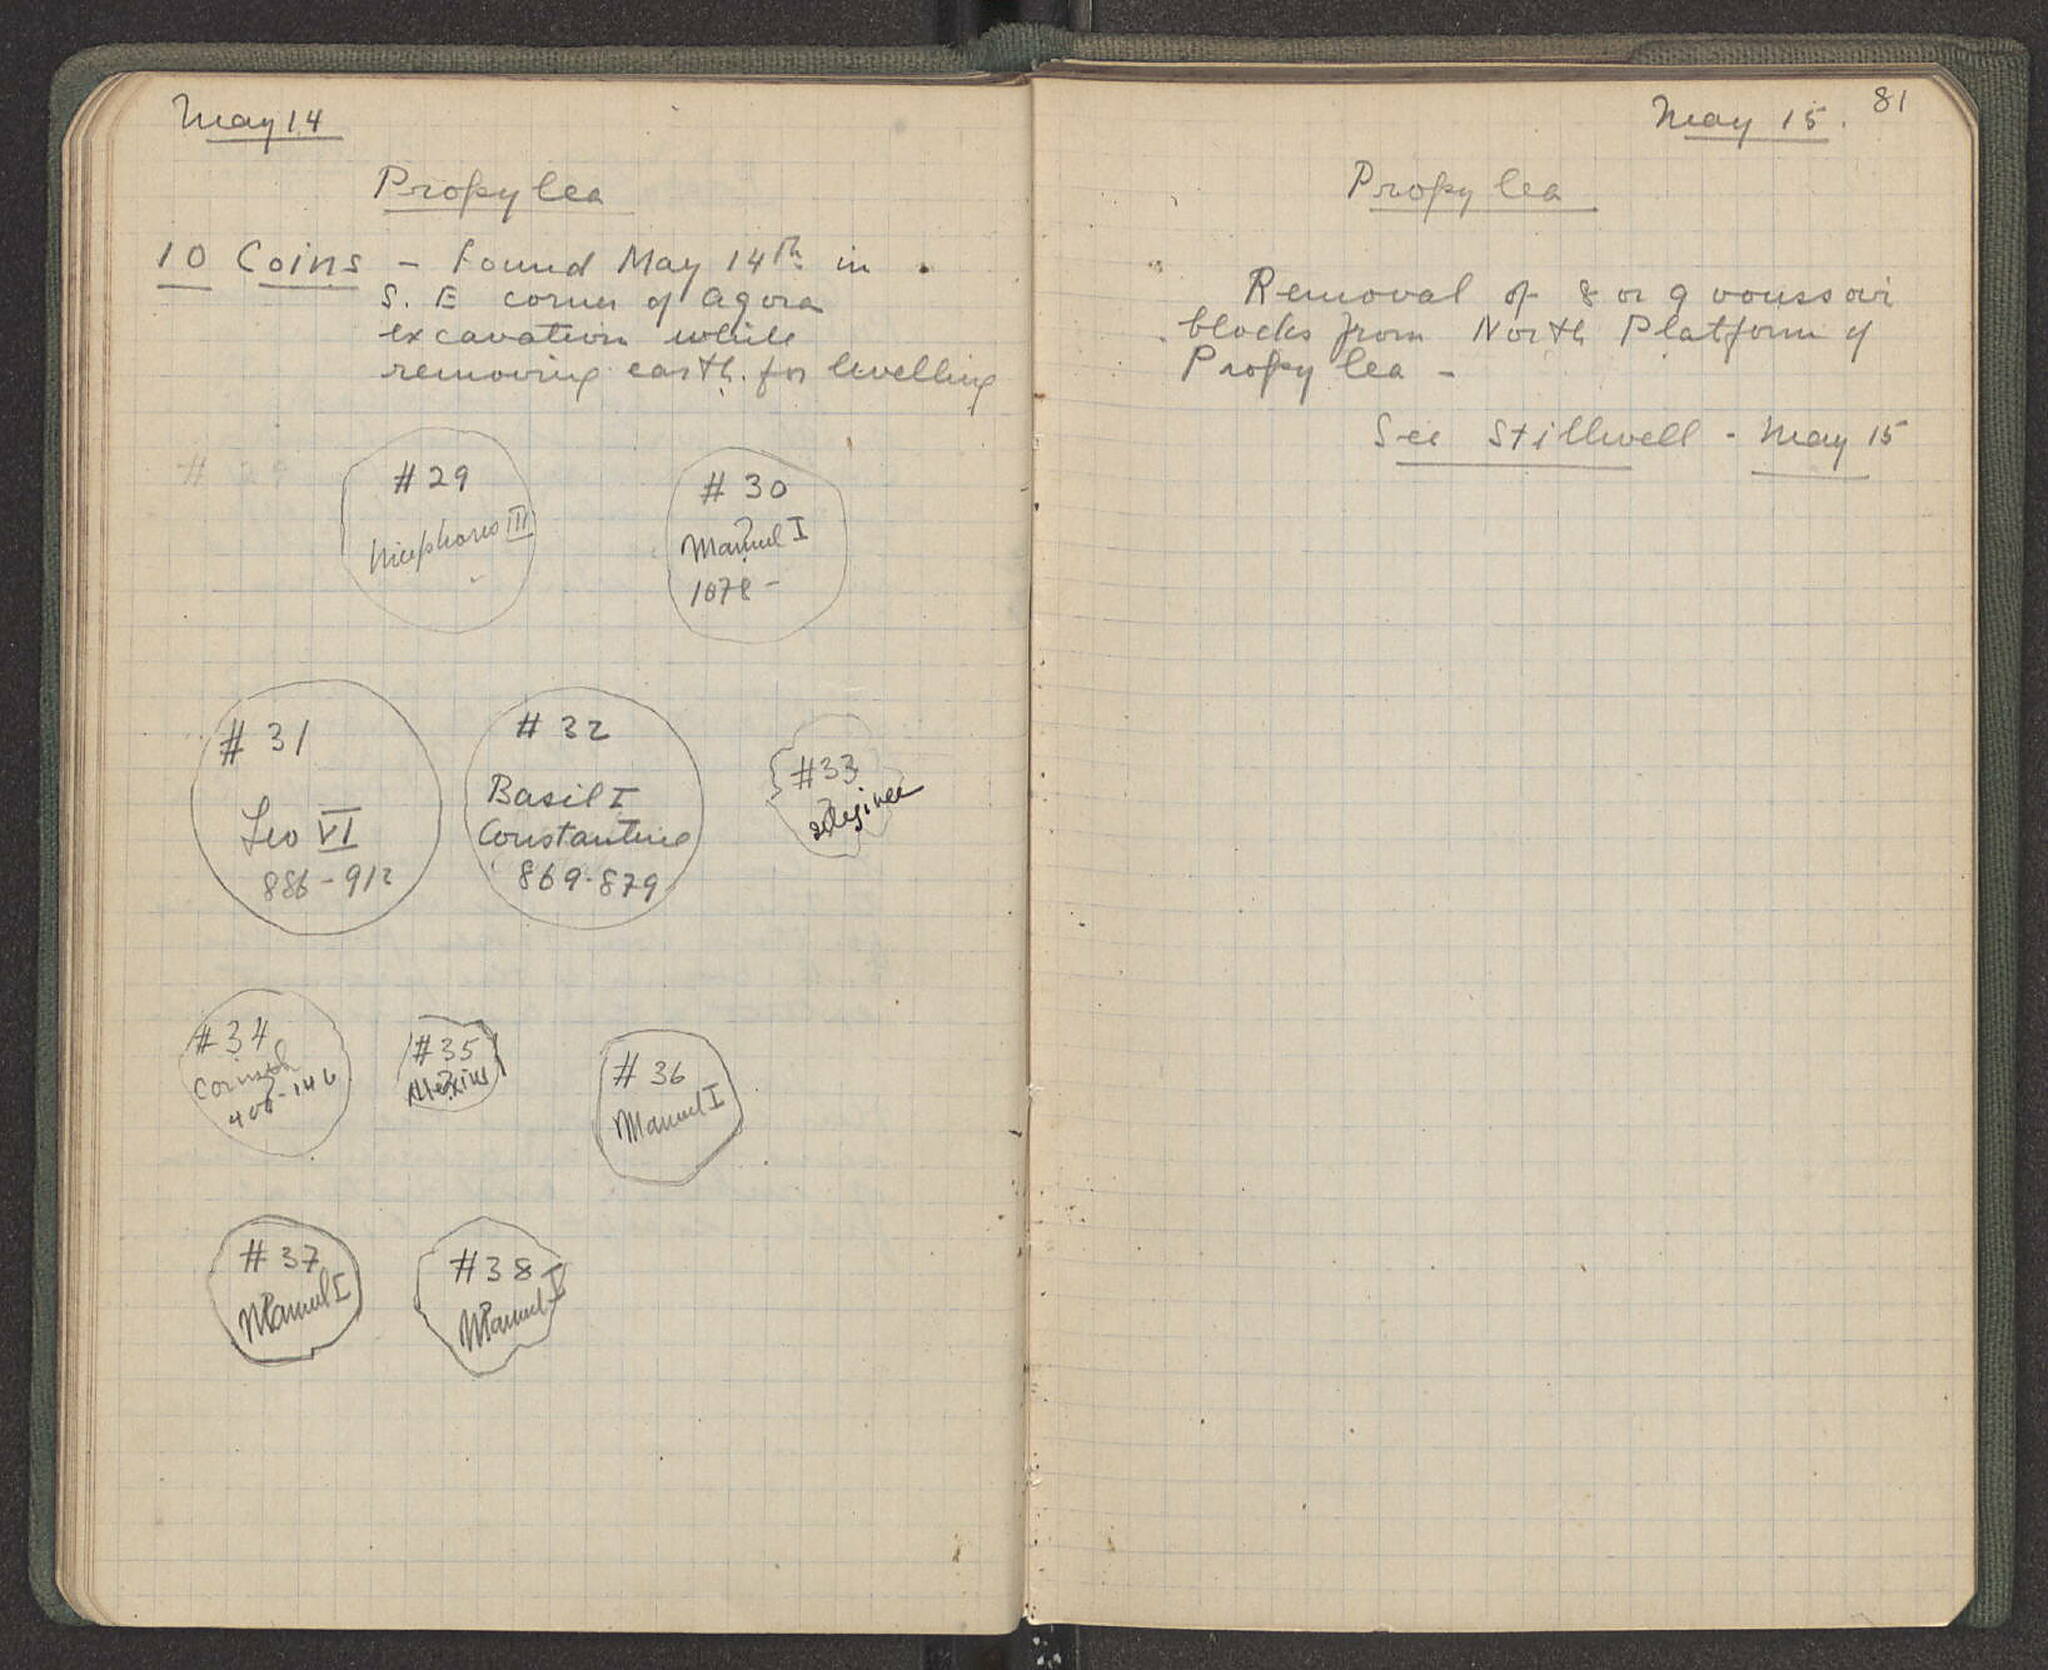 May 14
Propylea
10 Coins - found May 14th in
S. E corner of Agora
excavation while
removing earth for levelling
# 29
#29
Nicephorus III
# 30
Manuel I
?
1078 -
# 31
Leo VI
886-912
# 32
Basil I
Constantine
869-879
#33
?
#34
Corinth
?
400-146
#35
Alexius
?
#36
Manuel I
#37
Manuel I
?
#38
Manuel I
?
81
May 15.
Propylea
Removal of 8 or 9 voussoir
blocks from North Platform of
Propylea -
See Stillwell - May 15